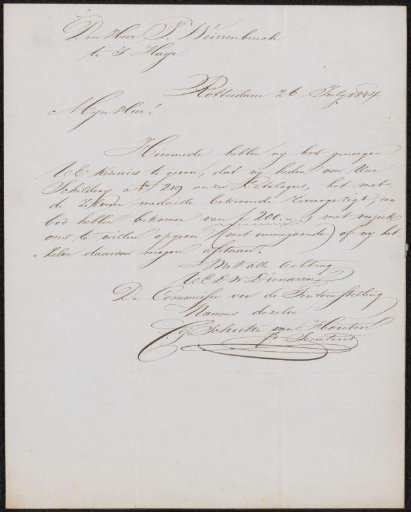 Den Heer J. Weissenbruch
te 's Hage.
Rotterdam 26 July 1844
Mijn Heer!
Hiermede hebben wij het genoegen
UE kennis te geven, dat wij heden van Uwe
Schilderij No 219 onzer Katalogus, het met
de zilveren medaille bekroonde, een
bod hebben bekomen van f 200.- met verzoek
ons te willen opgeven of wij het
daarvoor mogen afstaan.
Met alle Achting
UE D.W. Dienaren
De Commissie van de Tentoonstelling
Namens dezelve
van Houten